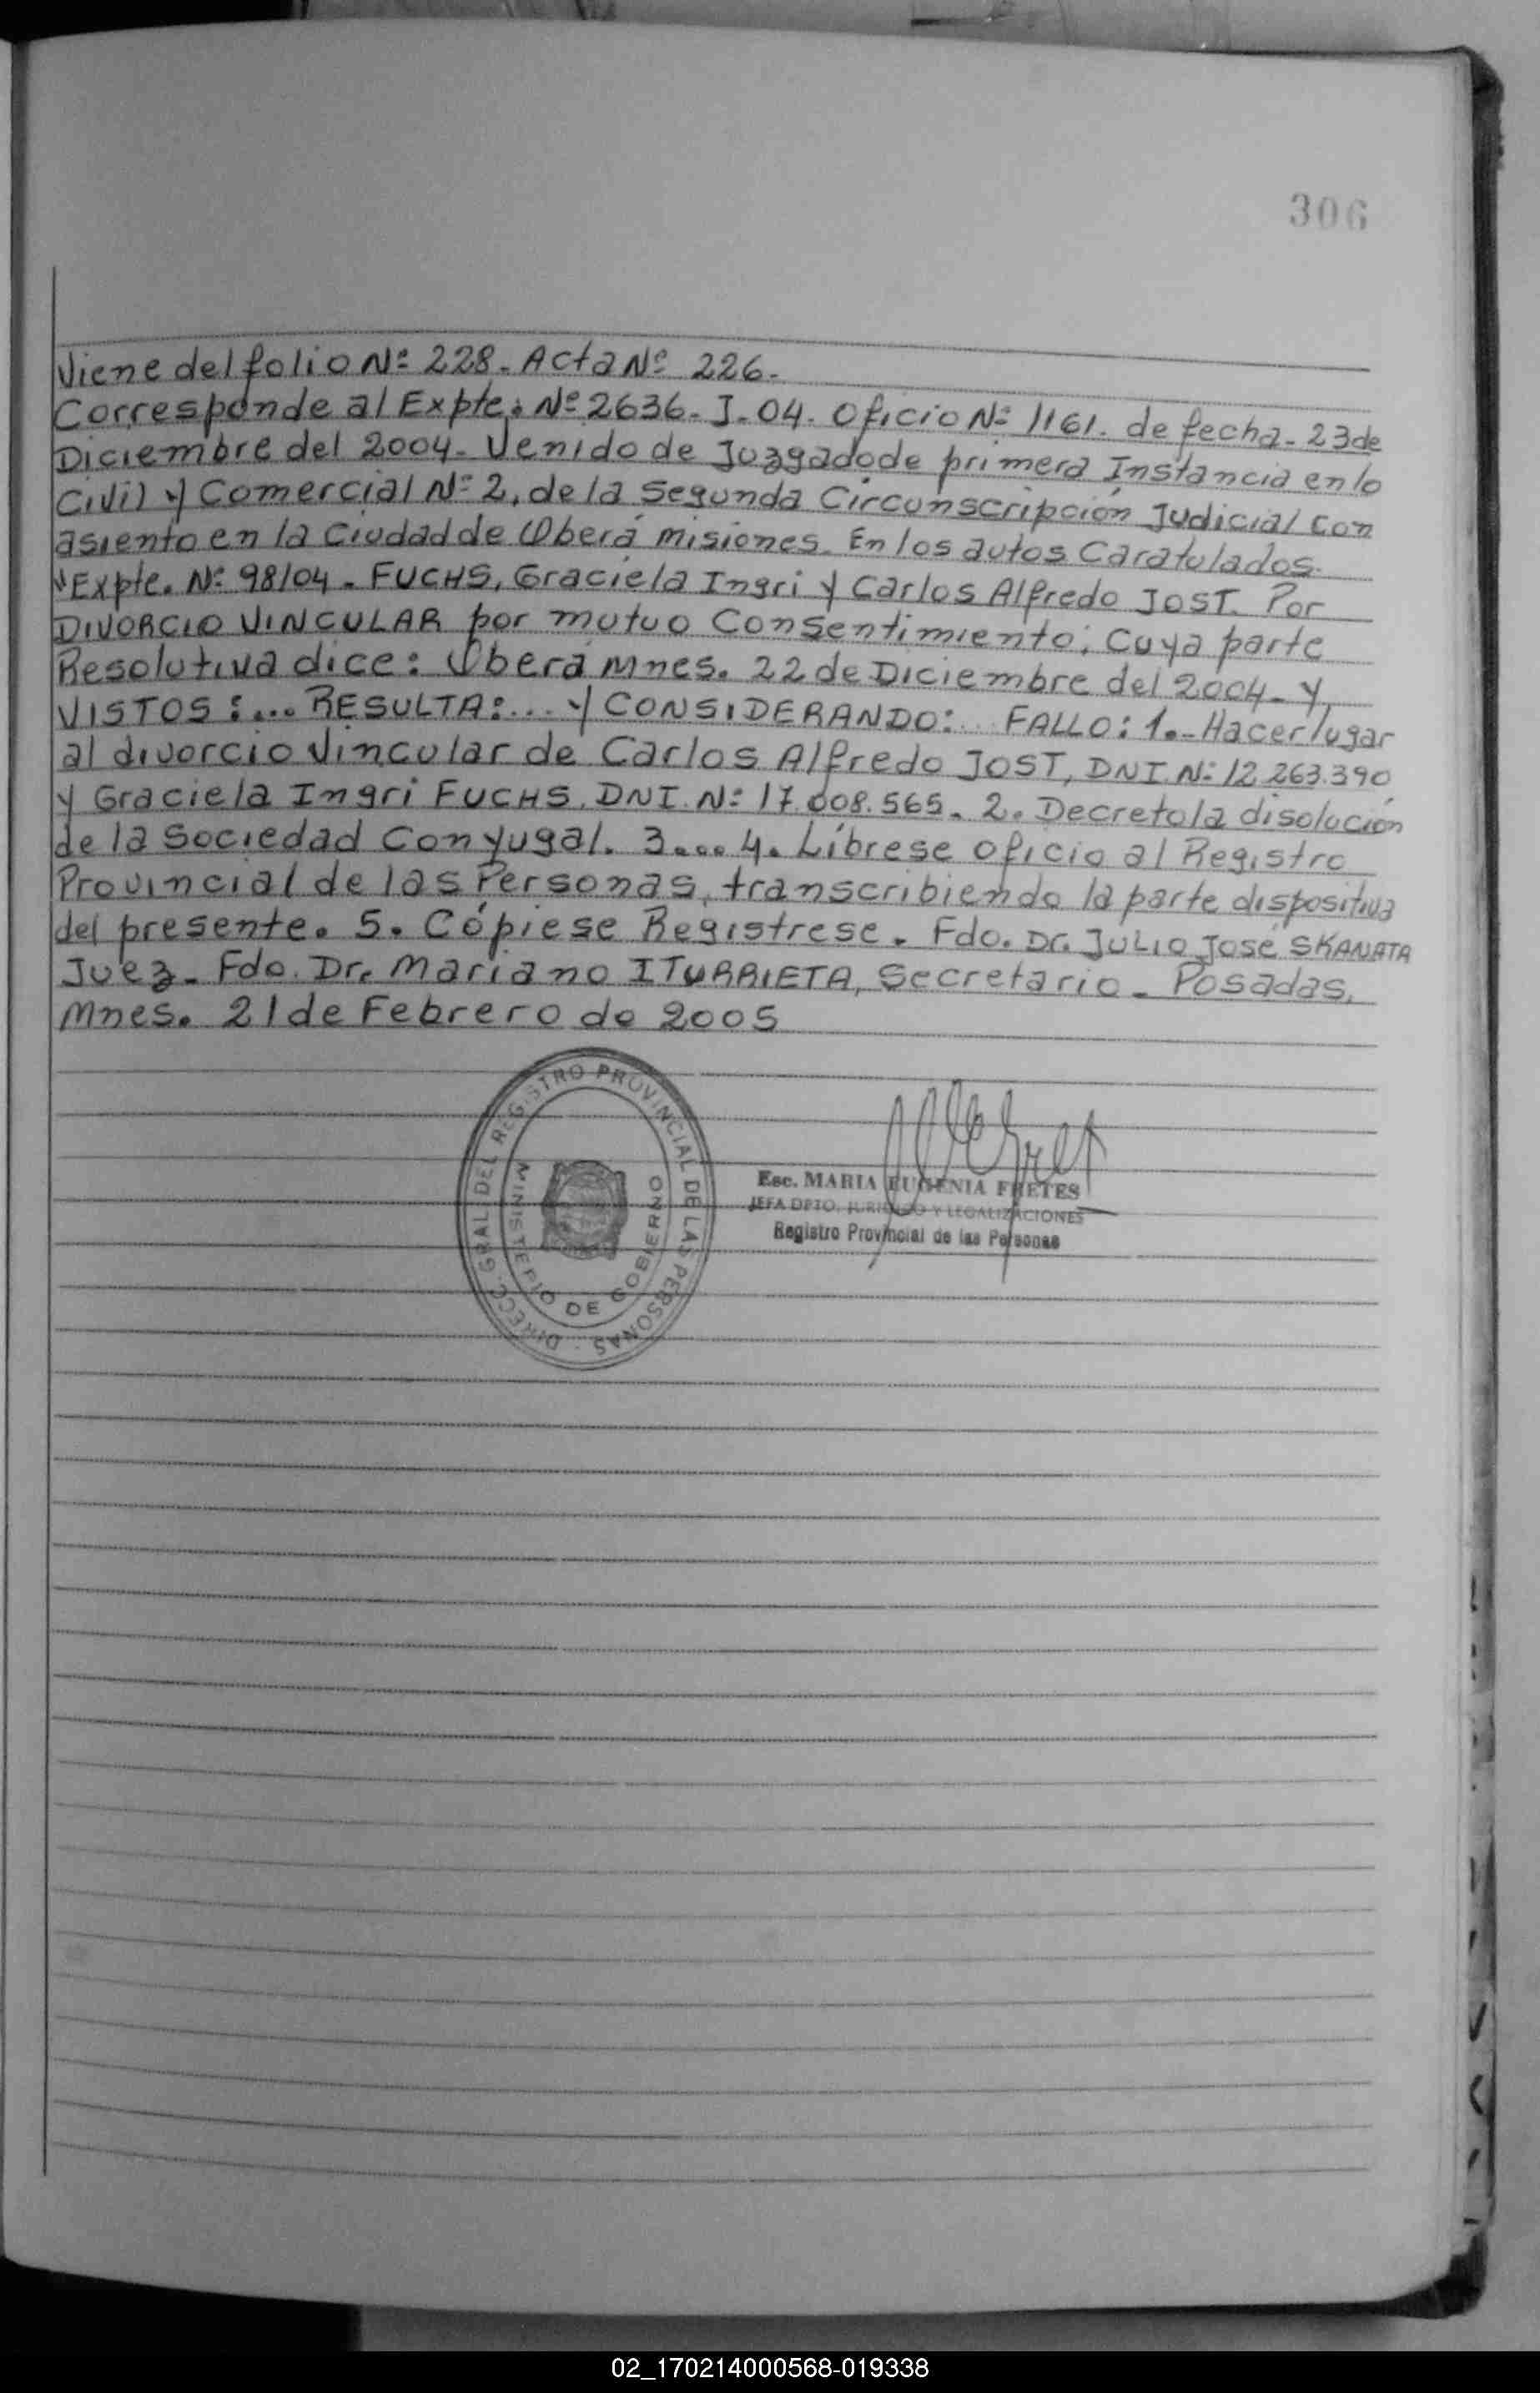 306
Viene del folio Nº 228. Acta Nº 226.
Corresponde al Expte. Nº 2636. J. 04. Oficio Nº 1161. de fecha. 23 de
Diciembre del 2004. Venido de Juzgado de primera Instancia en lo
Civil y Comercial Nº 2, de la Segunda Circunscripción Judicial con
asiento en la Ciudad de Oberá misiones. En los autos Caratulados.
"Expte. Nº 98/04. FUCHS, Graciela Ingri y Carlos Alfredo JOST. Por
DIVORCIO VINCULAR por mutuo Consentimiento; Cuya parte
Resolutiva dice: Oberá Mnes. 22 de Diciembre del 2004. Y,
VISTOS:... RESULTA:... y CONSIDERANDO:... FALLO: 1.- Hacer lugar
al divorcio Vincular de Carlos Alfredo JOST, DNI. Nº 12.263.390
y Graciela Ingri FUCHS. DNI. Nº 17.008.565. 2. Decreto la disolución
de la Sociedad Conyugal. 3.... 4. Líbrese oficio al Registro
Provincial de las Personas, transcribiendo la parte dispositiva
del presente. 5. Cópiese Registrese. Fdo. Dr. JULIO José SKANATA
Juez. Fdo. Dr. Mariano ITURRIETA, Secretario. Posadas,
Mnes. 21 de Febrero de 2005
DIRECC. GRAL. DEL REGISTRO PROVINCIAL DE LAS PERSONAS
MINISTERIO DE GOBIERNO
Esc. MARIA EUGENIA FRETES
JEFA DPTO. JURIDICO Y LEGALIZACIONES
Registro Provincial de las Personas
02_170214000568-019338